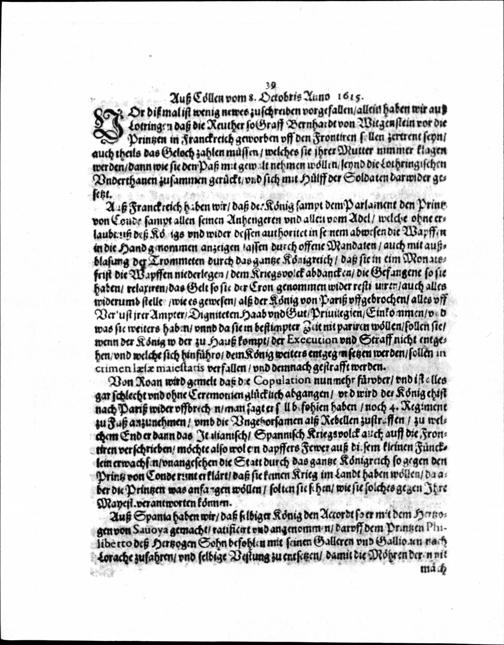 39
Auß Cöllen vom 8. Octobris Anno 1615.
VOr dißmal ist wenig newes zuschreiben vorgefallen/ allein haben wir auß
Lotringen daß die Reuther so Graff Bernhardt von Witgenstein vor die
Printzen in Franckreich geworben vff den Frontiren zertrent seyn/
auch theils das Geloch zahlen müssen/ welches sie ihrer Mutter nimmer klagen
werden/ dann wie sie den Paß mit gewalt nehmen wöllen/ seynd die Lothringischen
Vnderthanen zusammen gerückt/ vnd sich mit Hülff der Soldaten darwider ge-
setzt.
Auß Franckreich haben wir/ daß der König sampt dem Parlament den Printz
von Conde sampt allen seinen Anhengeren vnd allen vom Adel/ welche ohne er-
laubnuß deß Königs vnd wider dessen authoritet in seinem abwesen die Wapffen
in die Hand genommen anzeigen lassen durch offene Mandaten/ auch mit auß-
blasung der Trommeten durch das gantze Königreich/ daß sie in eim Monats-
frist die Wapffen niederlegen/ dem Kriegsvolck abdancken/ die Gefangene so sie
haben/ relaxiren/ das Gelt so sie der Cron genommen wider restituiren/ auch alles
widerumb stelle/ wie es gewesen/ alß der König von Pariß vffgebrochen/ alles vff
Verlust jrer Ampter/ Digniteten Haab vnd Gut/ Priuilegien/ Einkommen/ vnd
was sie weiters haben/ vnnd da sie in bestimpter Zeit nit pariren wöllen/ sollen sie/
wenn der König wider zu Hauß kompt/ der Execution vnd Straff nicht entge-
hen/ vnd welche sich hinführo/ dem König weiters entgegen setzen werden/ sollen in
crimen læsæ maiestatis verfallen/ vnd demnach gestrafft werden.
Von Roan wird gemelt daß die Copulation nunmehr fürvber/ vnd ist alles
gar schlecht vnd ohne Ceremonien glücklich abgangen/ vnd wird der König ehist
nach Pariß wider vffbrechen/ man sagt er soll befohlen haben/ noch 4. Regiment
zu Fuß anzunehmen/ vmb die Vngehorsamen alß Rebellen zustraffen/ zu wel-
chem End er dann das Italianisch/ Spannisch Kriegsvolck auch auff die Fron-
tiren verschrieben/ möchte also wol ein dapffers Fewer auß disem kleinen Fünck-
lein erwachsen/ vnangesehen die Statt durch das gantze Königreich so gegen den
Printz von Conde runt erklärt/ daß sie keinen Krieg im Landt haben wöllen/ da a-
ber die Printzen was anfangen wöllen/ solten sie sehen/ wie sie solches gegen Ihre
Mayest. verantworten können.
Auß Spania haben wir/ daß selbiger König den Accordt so er mit dem Hertzo-
gen von Sauoya gemacht/ ratificirt vnd angenommen/ darvff dem Printzen Phi-
liberto deß Hertzogen Sohn befohlen mit seinen Galleren vnd Gallionen nach
Lorache zufahren/ vnd selbige Vestung zu entsetzen/ damit die Mohren deren nit
mäch